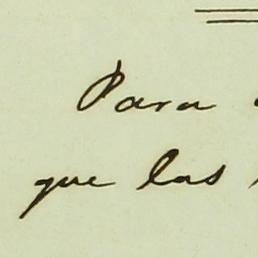 Para
que las